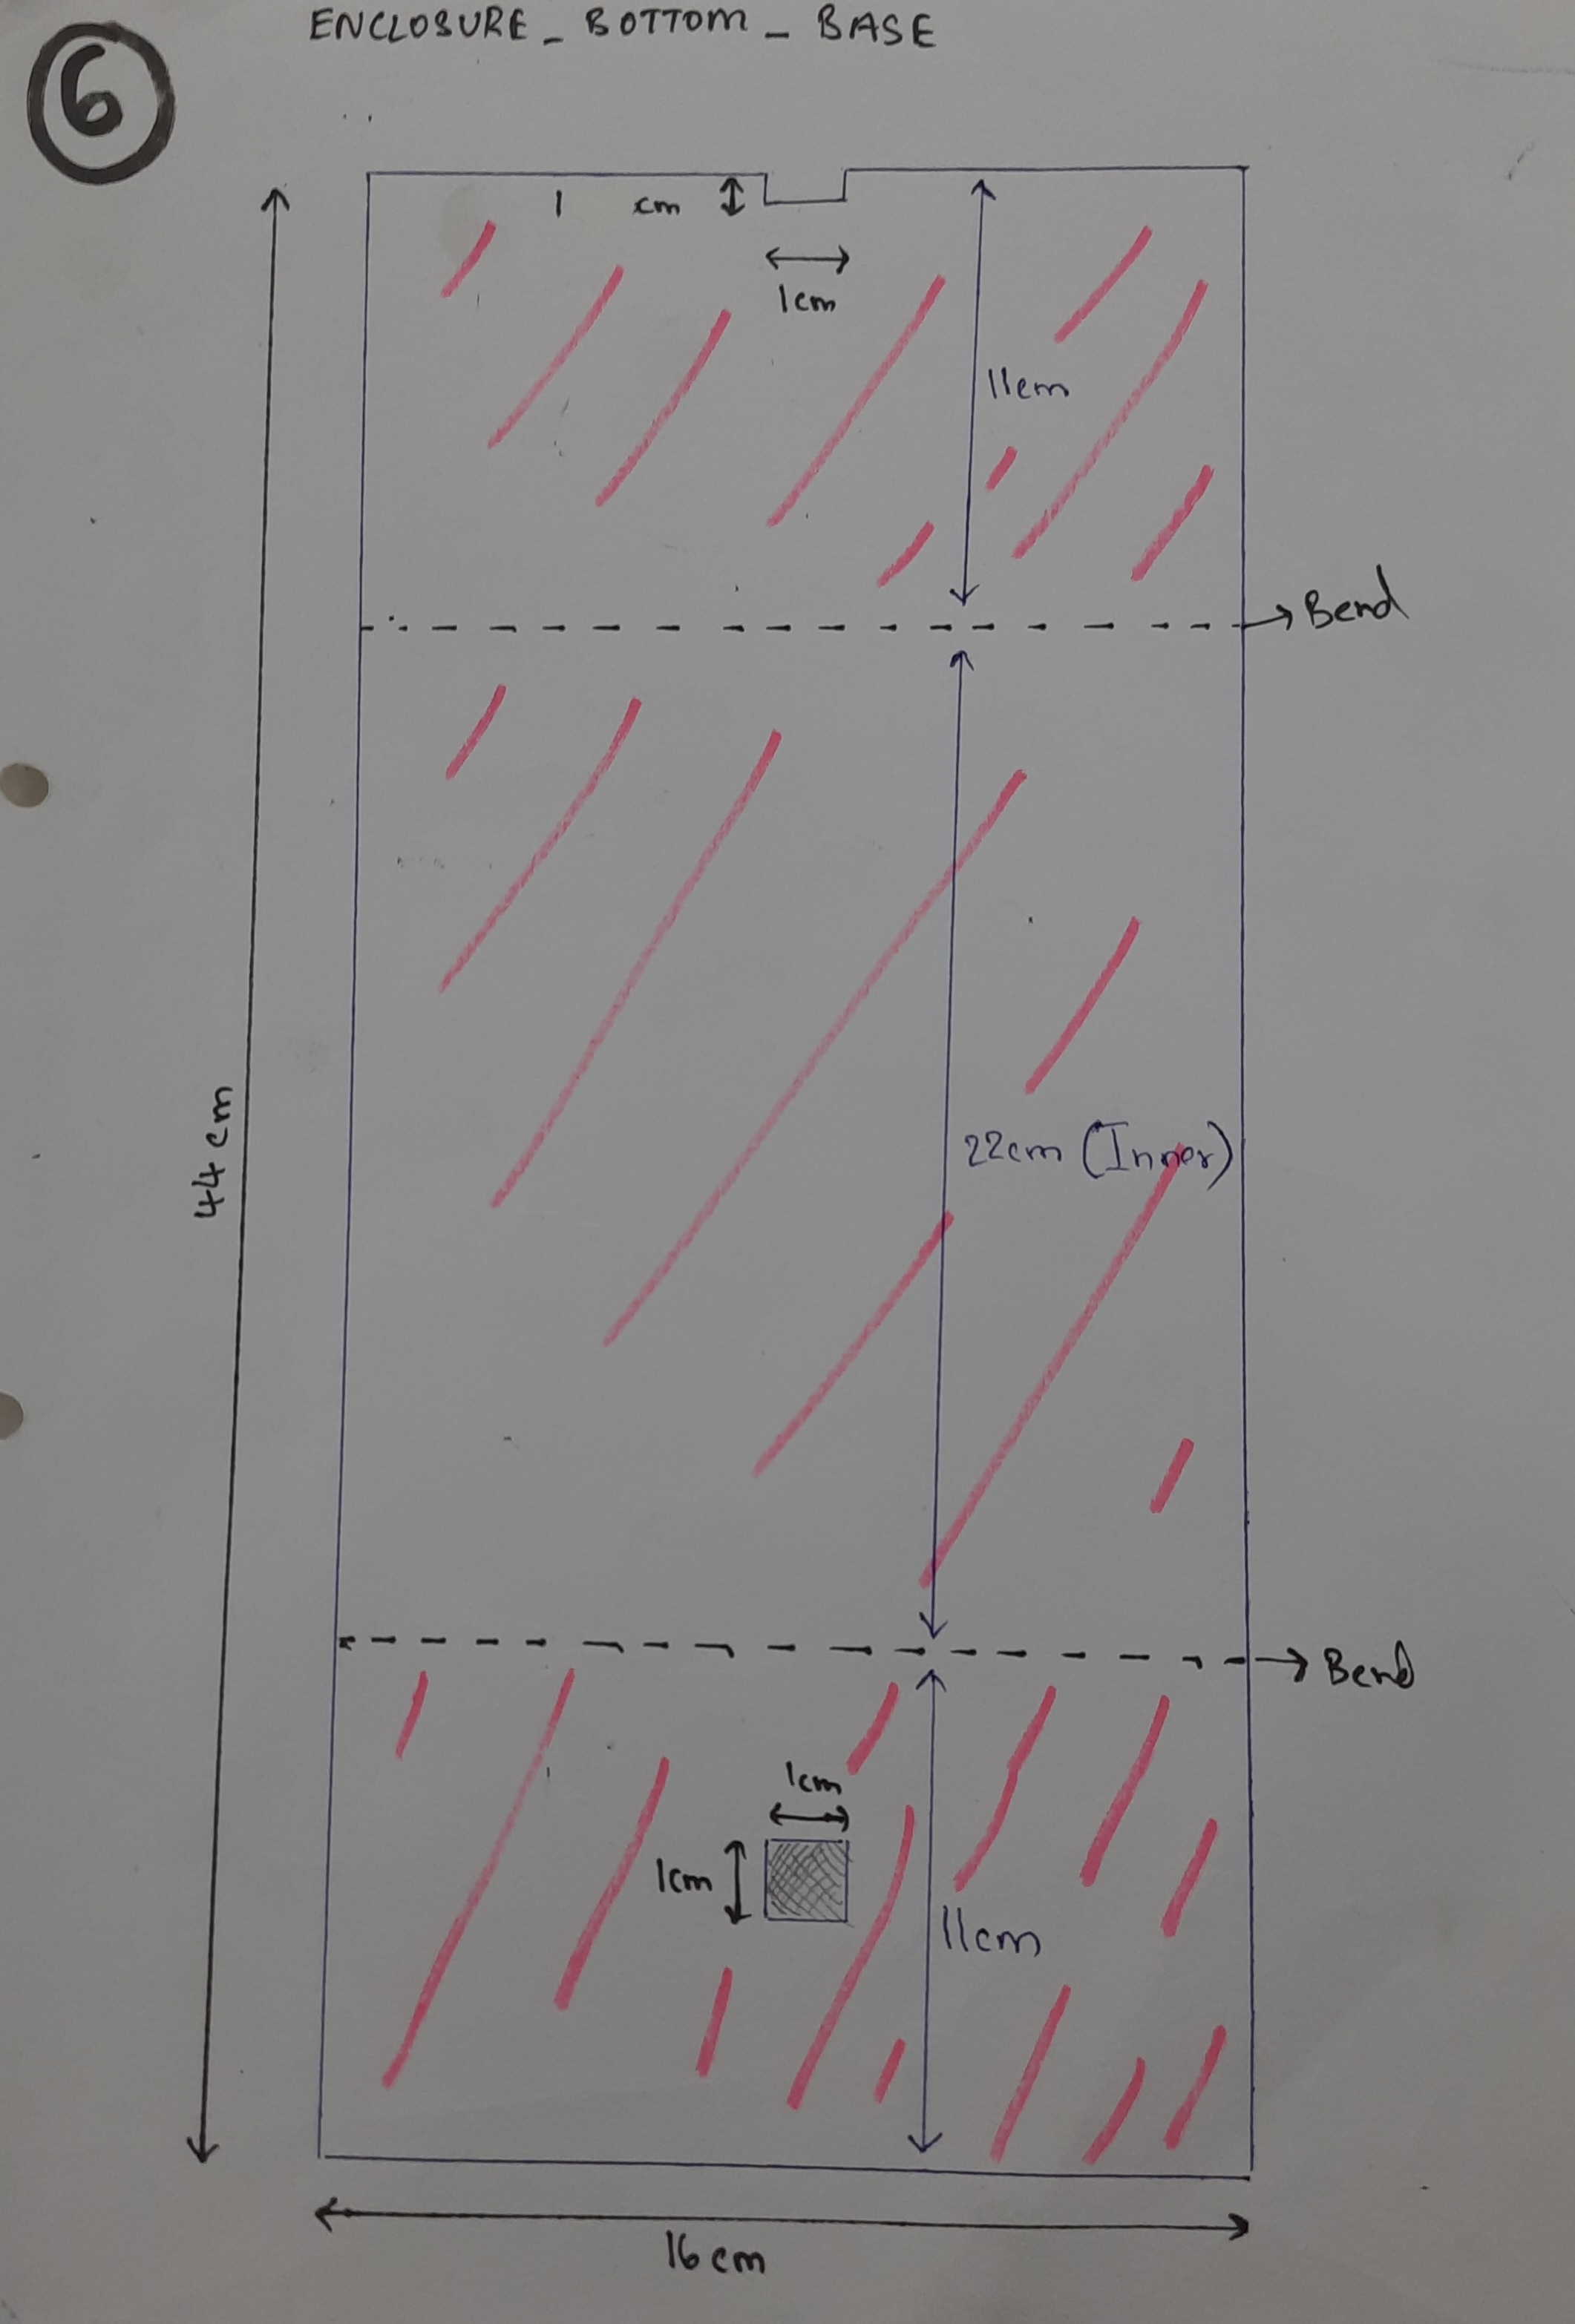 6
ENCLOSURE_BOTTOM_BASE
1 cm
1cm
11cm
Bend
44cm
22cm (Inner)
Bend
1cm
1cm
11cm
16cm